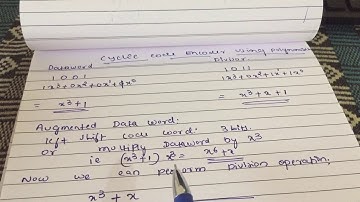 Cyclic Code Encoder using Polynomials
Dataword Divisor
1 0 0 1 1 0 1 1
1x³+0x²+0x¹+1x⁰ 1x³+0x²+1x¹+1x⁰
= x³+1 = x³+x+1
Augmented Data Word:
left shift code word: 3 bits.
Or multiply Dataword by x³
ie (x³+1) x³ = x⁶+x³
Now we can perform Division operation,
x³ + x